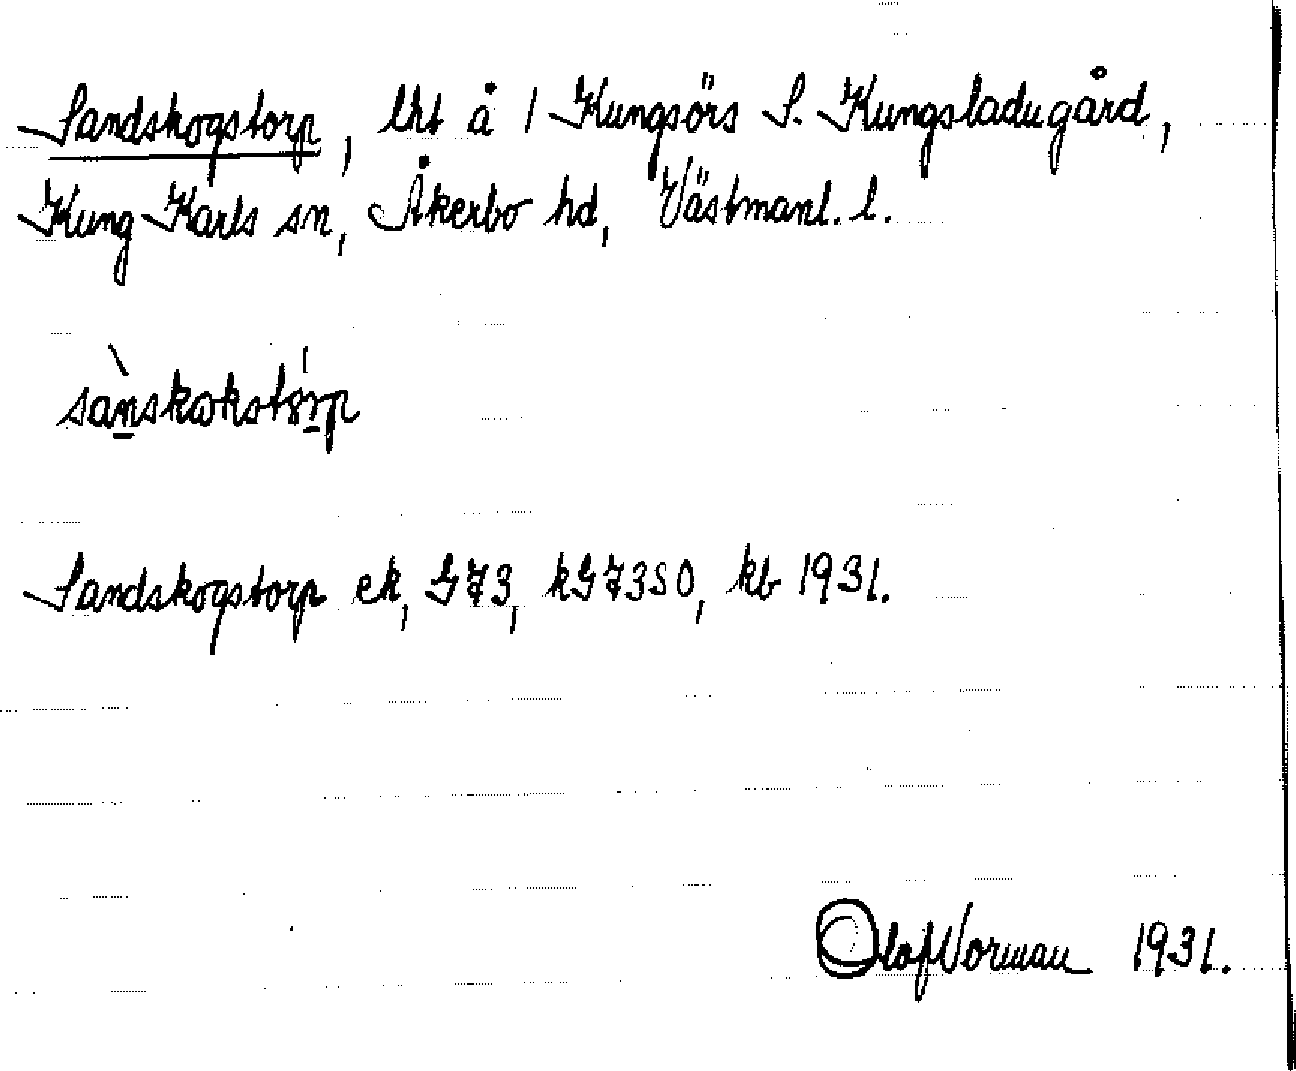 Sandskogstorp, lht å 1 Kungsörs S. Kungsladugård,
Kung Karls sn, Åkerbo hd, Västmanl. l.
Sandskogstorp ek, G73, kG73SO, kb 1931.
Olof Norman 1931.